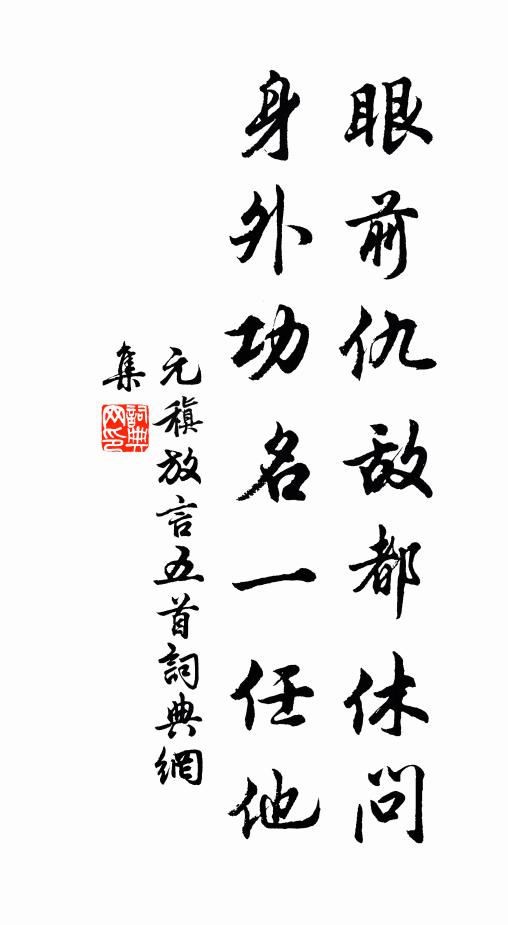 眼前仇敌都休问
身外功名一任他
元稹放言五首詞典網
集
詞典网印